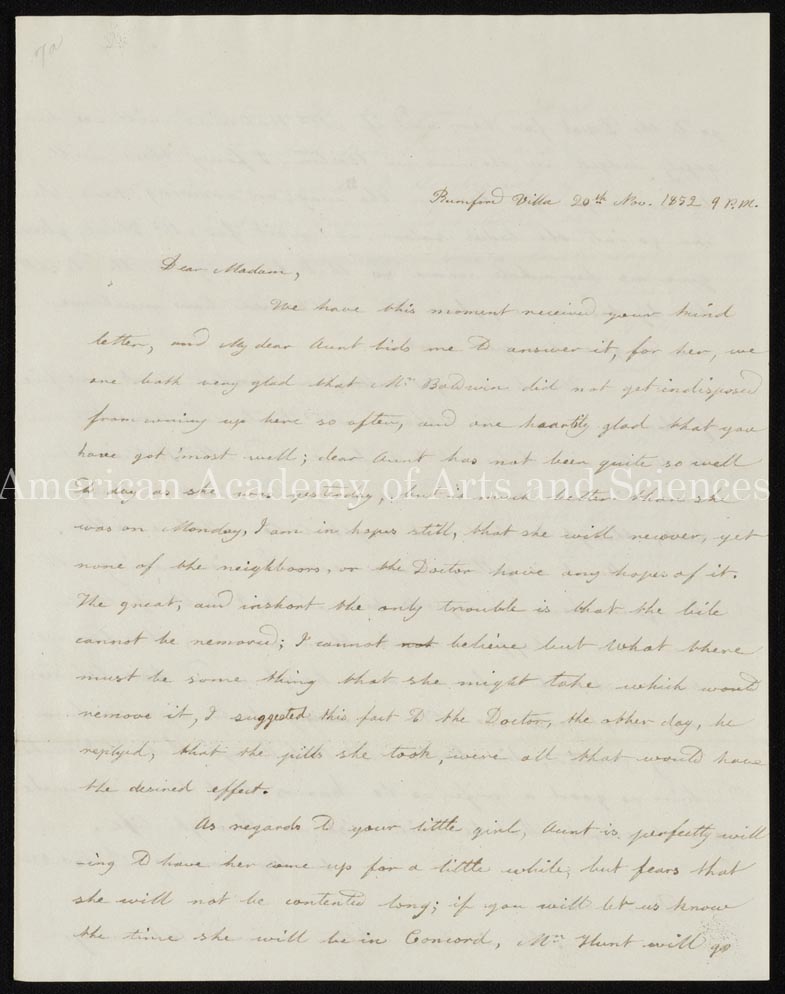 7a
Rumford Villa 20th Nov. 1852 9 P.M.
Dear Madam,
We have this moment received your kind
letter, and My dear Aunt bids me to answer it, for her, we
are both very glad that Mr Baldwin did not get indisposed
from coming up here so often, and are heartily glad that you
have got 'most well; dear Aunt has not been quite so well
American Academy of Arts and Sciences
to day as she was yesterday, but is much better than she
was on Monday, I am in hopes still, that she will recover, yet
none of the neighboors, or the Doctor have any hopes of it.
The great, and inshort the only trouble is that the bile
cannot be removed; I cannot not believe but what there
must be some thing that she might take which would
remove it, I suggested this fact to the Doctor, the other day, he
replyed, that the pills she took, were all that would have
the desired effect.
As regards to your little girl, Aunt is perfectly will
-ing to have her come up for a little while, but fears that
she will not be contented long; if you will let us know
the time she will be in Concord, Mr Hunt will go